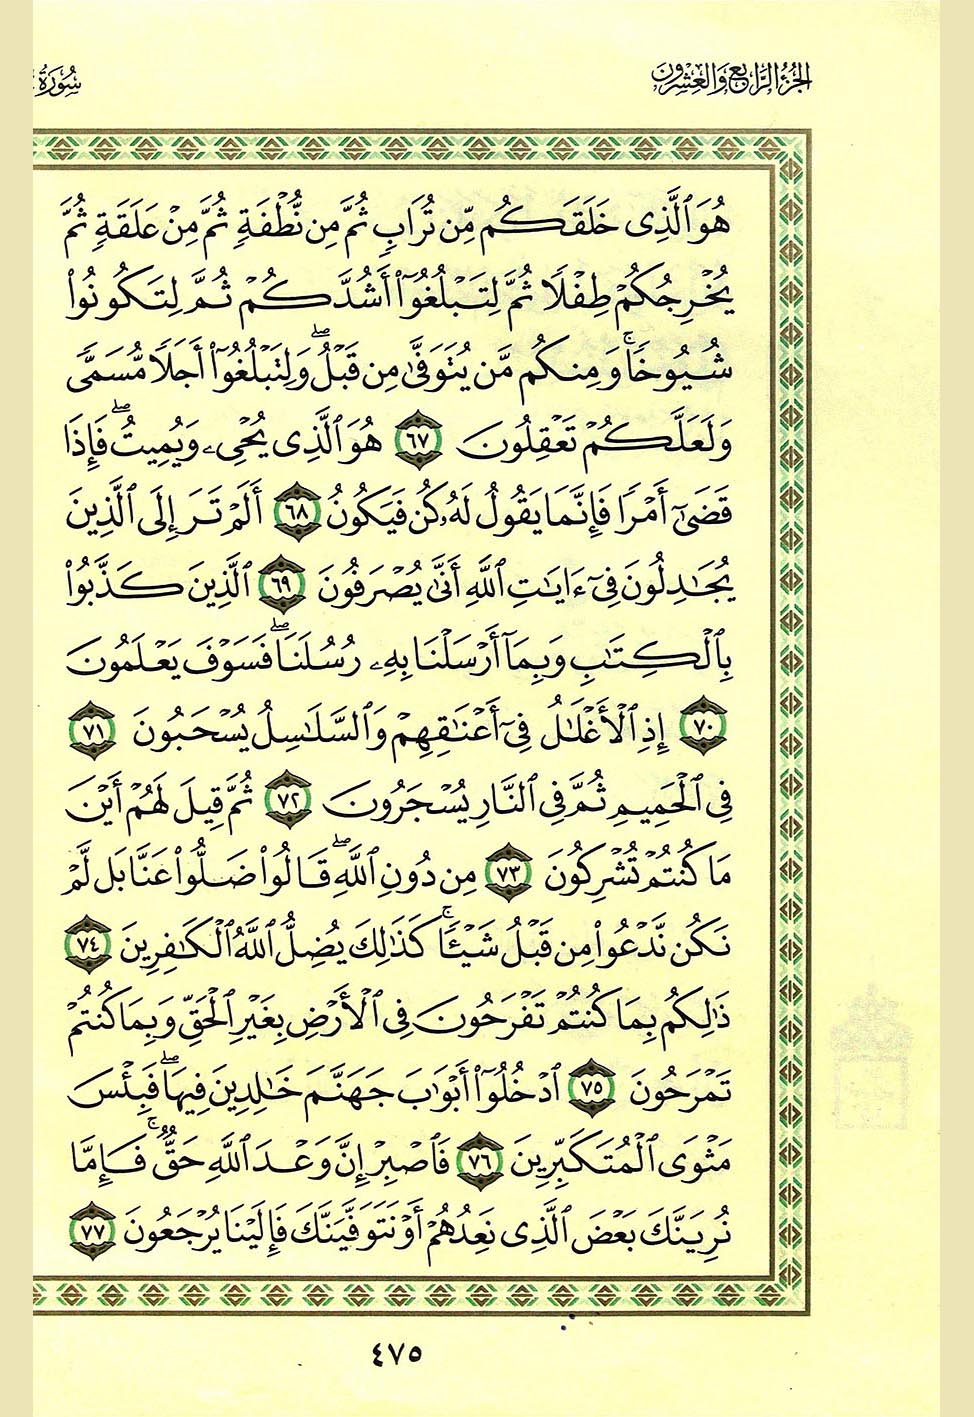 الجزء الرابع والعشرون
سورة
هُوَ ٱلَّذِى خَلَقَكُم مِّن تُرَابٍ ثُمَّ مِن نُّطْفَةٍ ثُمَّ مِنْ عَلَقَةٍ ثُمَّ
يُخْرِجُكُمْ طِفْلًا ثُمَّ لِتَبْلُغُوٓا۟ أَشُدَّكُمْ ثُمَّ لِتَكُونُوا۟
شُيُوخًا ۚ وَمِنكُم مَّن يُتَوَفَّىٰ مِن قَبْلُ ۖ وَلِتَبْلُغُوٓا۟ أَجَلًا مُّسَمًّى
وَلَعَلَّكُمْ تَعْقِلُونَ ٦٧ هُوَ ٱلَّذِى يُحْىِۦ وَيُمِيتُ ۖ فَإِذَا
قَضَىٰٓ أَمْرًا فَإِنَّمَا يَقُولُ لَهُۥ كُن فَيَكُونُ ٦٨ أَلَمْ تَرَ إِلَى ٱلَّذِينَ
يُجَـٰدِلُونَ فِىٓ ءَايَـٰتِ ٱللَّهِ أَنَّىٰ يُصْرَفُونَ ٦٩ ٱلَّذِينَ كَذَّبُوا۟
بِٱلْكِتَـٰبِ وَبِمَآ أَرْسَلْنَا بِهِۦ رُسُلَنَا ۖ فَسَوْفَ يَعْلَمُونَ
٧٠ إِذِ ٱلْأَغْلَـٰلُ فِىٓ أَعْنَـٰقِهِمْ وَٱلسَّلَـٰسِلُ يُسْحَبُونَ ٧١
فِى ٱلْحَمِيمِ ثُمَّ فِى ٱلنَّارِ يُسْجَرُونَ ٧٢ ثُمَّ قِيلَ لَهُمْ أَيْنَ
مَا كُنتُمْ تُشْرِكُونَ ٧٣ مِن دُونِ ٱللَّهِ ۖ قَالُوا۟ ضَلُّوا۟ عَنَّا بَل لَّمْ
نَكُن نَّدْعُوا۟ مِن قَبْلُ شَيْـًٔا ۚ كَذَٰلِكَ يُضِلُّ ٱللَّهُ ٱلْكَـٰفِرِينَ ٧٤
ذَٰلِكُم بِمَا كُنتُمْ تَفْرَحُونَ فِى ٱلْأَرْضِ بِغَيْرِ ٱلْحَقِّ وَبِمَا كُنتُمْ
تَمْرَحُونَ ٧٥ ٱدْخُلُوٓا۟ أَبْوَٰبَ جَهَنَّمَ خَـٰلِدِينَ فِيهَا ۖ فَبِئْسَ
مَثْوَى ٱلْمُتَكَبِّرِينَ ٧٦ فَٱصْبِرْ إِنَّ وَعْدَ ٱللَّهِ حَقٌّ ۚ فَإِمَّا
نُرِيَنَّكَ بَعْضَ ٱلَّذِى نَعِدُهُمْ أَوْ نَتَوَفَّيَنَّكَ فَإِلَيْنَا يُرْجَعُونَ ٧٧
٤٧٥